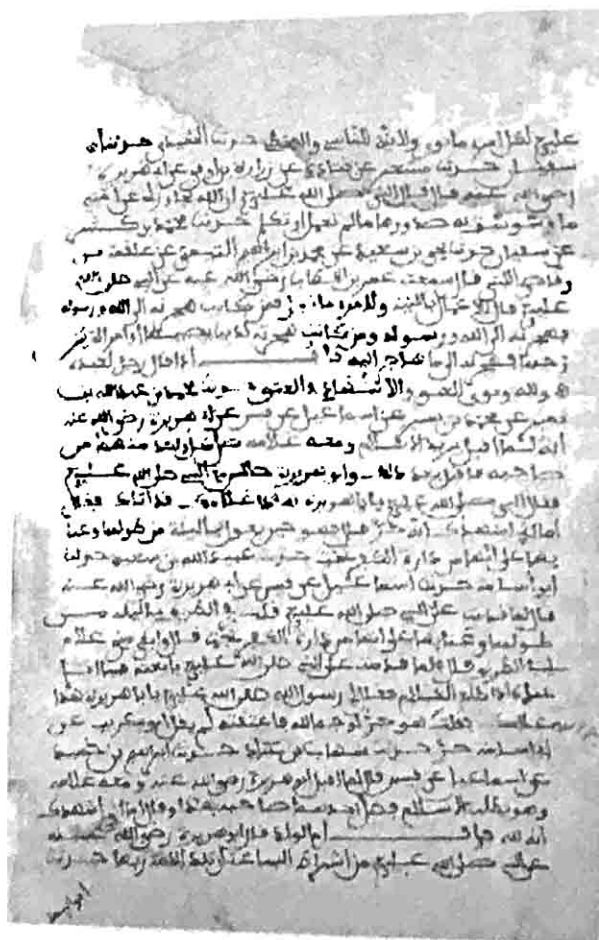 عليه لكل امرئ ما نوى ولا نية للناسي والمخطئ حدثنا الحميدي حدثنا
سفيان حدثنا مسعر عن قتادة عن زرارة بن اوفى عن ابي هريرة
رضي الله عنه قال قال النبي صلى الله عليه ان الله تجاوز لي عن امتي
ما وسوست به صدورها ما لم تعمل او تكلم حدثنا محمد بن كثير
عن سفيان حدثنا يحيى بن سعيد عن محمد بن ابراهيم التيمي عن علقمة بن
وقاص الليثي قال سمعت عمر بن الخطاب رضي الله عنه عن النبي صلى الله
عليه قال الاعمال بالنية ولامرئ ما نوى فمن كانت هجرته الى الله ورسوله
فهجرته الى الله ورسوله ومن كانت هجرته لدنيا يصيبها او امراة يتز
وجها فهجرته الى ما هاجر اليه باب اذا قال رجل لعبده
هو لله ونوى العتق والاشهاد في العتق حدثنا محمد بن عبد الله بن
نمير عن محمد بن بشر عن اسماعيل عن قيس عن ابي هريرة رضي الله عنه
انه لما اقبل يريد الاسلام ومعه غلامه ضل كل واحد منهما من
صاحبه فاقبل بعد ذلك وابو هريرة جالس مع النبي صلى الله عليه
فقال النبي صلى الله عليه يا ابا هريرة هذا غلامك قد اتاك فقال
اما اني اشهدك انه حر قال فهو حين يقول يا ليلة من طولها وعنا
ئها على انها من دارة الكفر نجت حدثنا عبيد الله بن سعيد حدثنا
ابو اسامة حدثنا اسماعيل عن قيس عن ابي هريرة رضي الله عنه
قال لما قدمت على النبي صلى الله عليه قلت في الطريق يا ليلة من
طولها وعنائها على انها من دارة الكفر نجت قال وابق مني غلام
لي في الطريق قال فلما قدمت على النبي صلى الله عليه بايعته فبينا انا
عنده اذ طلع الغلام فقال لي رسول الله صلى الله عليه يا ابا هريرة هذا
غلامك فقلت هو حر لوجه الله فاعتقته لم يقل ابو كريب عن
ابي اسامة حر حدثنا شهاب بن عباد حدثنا ابراهيم بن حميد
عن اسماعيل عن قيس قال لما اقبل ابو هريرة رضي الله عنه ومعه غلامه
وهو يطلب الاسلام فضل احدهما صاحبه بهذا وقال اما اني اشهدك
انه لله باب ام الولد قال ابو هريرة رضي الله عنه
عن النبي صلى الله عليه من اشراط الساعة ان تلد الامة ربها حدثنا
ابو اليما